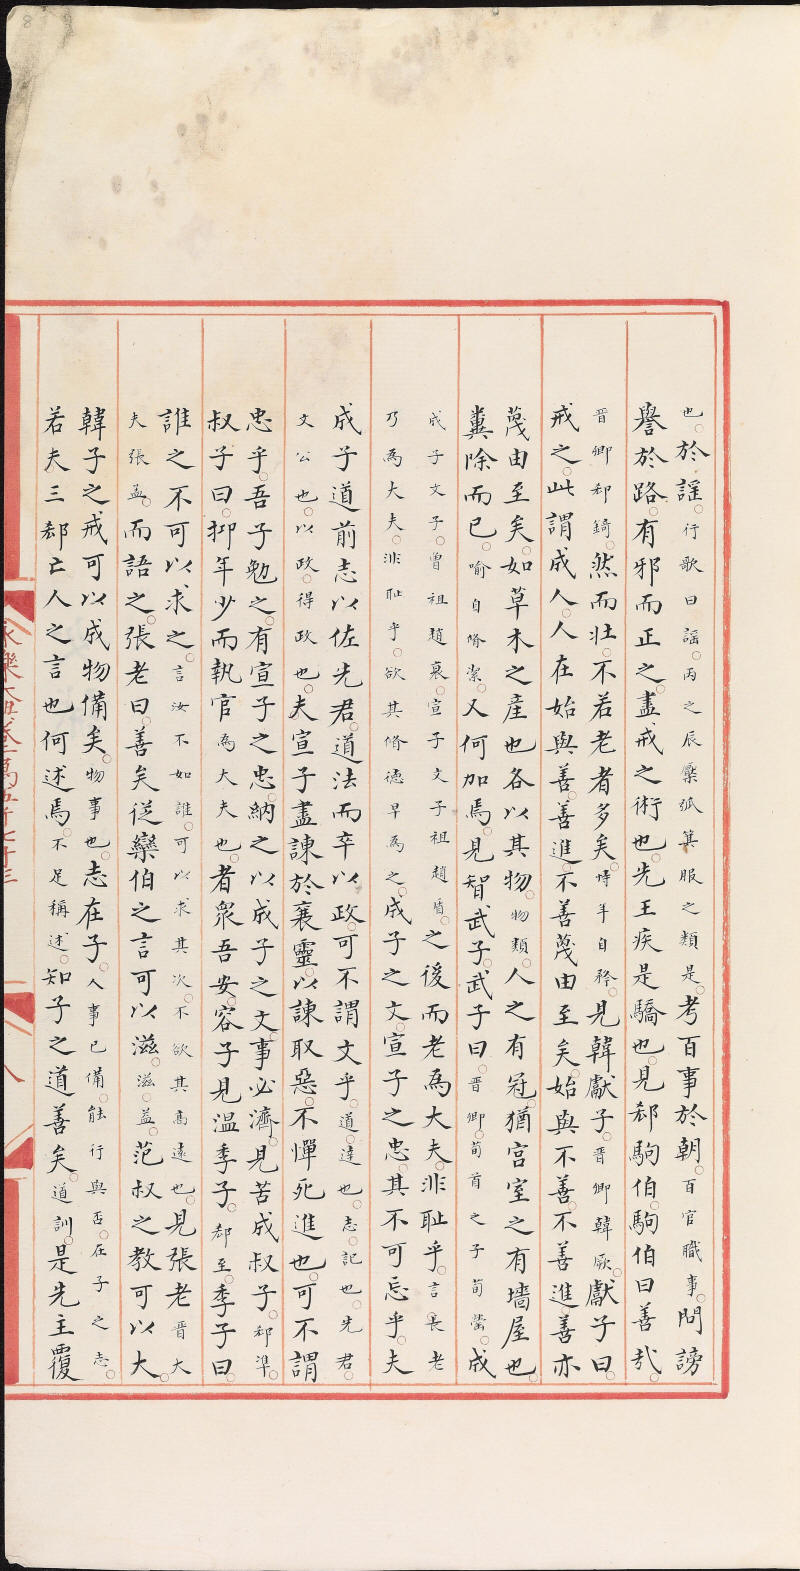 也。於謡。行歌曰謡。丙之辰檿弧箕服之類是。考百事於朝。百官職事。問謗
譽於路。有邪而正之。盡戒之術也。先王疾是驕也。見郄駒伯。駒伯曰善哉。
晋卿郄錡。然而壮。不若老者多矣。恃年自矜。見韓獻子。晋卿韓厥。獻子曰。
戒之。此謂成人。人在始與善。善進。不善蔑由至矣。始與不善。不善進。善亦
蔑由至矣。如草木之産也各以其物。物類。人之有冠。猶宫室之有墻屋也。
糞除而已。喻自脩潔。又何加焉。見智武子。武子曰。晋卿荀首之子荀罃。成
成子文子。曾祖趙衰。宣子文子祖趙盾。之後而老為大夫。非耻乎。言長老
乃為大夫。非耻乎。欲其脩德早為之。成子之文。宣子之忠。其不可忘乎。夫
成子道前志以佐先君。道法而卒以政。可不謂文乎。道。達也。志。記也。先君。
文公也。以政。得政也。夫宣子盡諫於襄靈。以諫取惡。不憚死進也。可不謂
忠乎。吾子勉之。有宣子之忠。納之以成子之文。事必濟。見苦成叔子。郄犨。
叔子曰。抑年少而執官為大夫也。者衆吾安。容子見温季子。郄至。季子曰。
誰之不可以求之。言汝不如誰。可以求其次。不欲其高遠也。見張老晋大
夫張孟。而語之。張老曰。善矣従欒伯之言可以滋。滋。益。范叔之教可以大。
韓子之戒可以成物備矣。物事也。志在子。人事已備。能行與否。在子之志。
若夫三郄亡人之言也何述焉。不足稱述。知子之道善矣。道訓。是先主覆
永樂大典卷二萬五百七十三
八